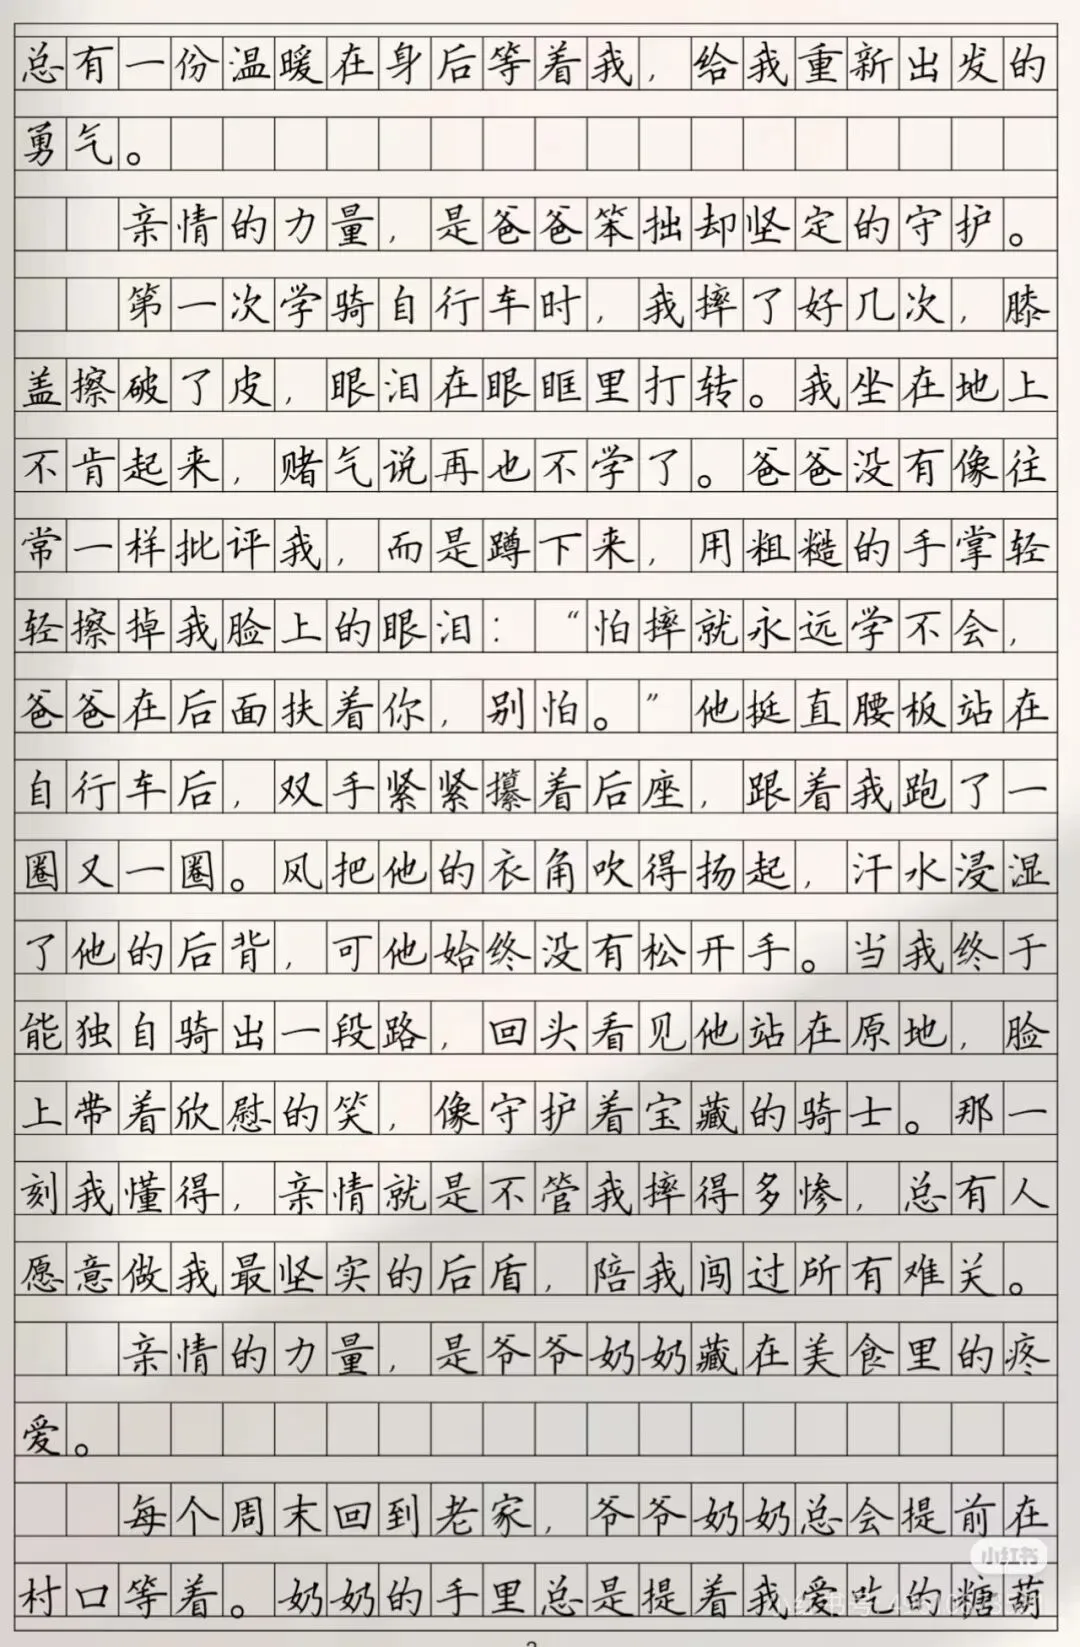 总有一份温暖在身后等着我，给我重新出发的
勇气。
亲情的力量，是爸爸笨拙却坚定的守护。
第一次学骑自行车时，我摔了好几次，膝
盖擦破了皮，眼泪在眼眶里打转。我坐在地上
不肯起来，赌气说再也不学了。爸爸没有像往
常一样批评我，而是蹲下来，用粗糙的手掌轻
轻擦掉我脸上的眼泪：“怕摔就永远学不会，
爸爸在后面扶着你，别怕。”他挺直腰板站在
自行车后，双手紧紧攥着后座，跟着我跑了一
圈又一圈。风把他的衣角吹得扬起，汗水浸湿
了他的后背，可他始终没有松开手。当我终于
能独自骑出一段路，回头看见他站在原地，脸
上带着欣慰的笑，像守护着宝藏的骑士。那一
刻我懂得，亲情就是不管我摔得多惨，总有人
愿意做我最坚实的后盾，陪我闯过所有难关。
亲情的力量，是爷爷奶奶藏在美食里的疼
爱。
每个周末回到老家，爷爷奶奶总会提前在
村口等着。奶奶的手里总是提着我爱吃的糖葫
小红书